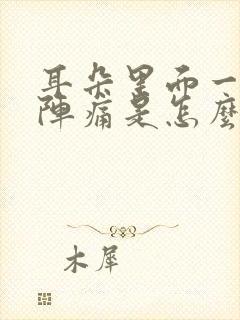 耳朵里面一
陣痛是怎麼
木犀